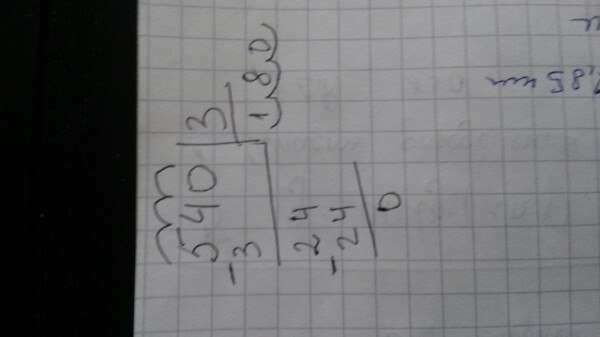 540 3
-3 1,8,0
24
-24
0
,85 км